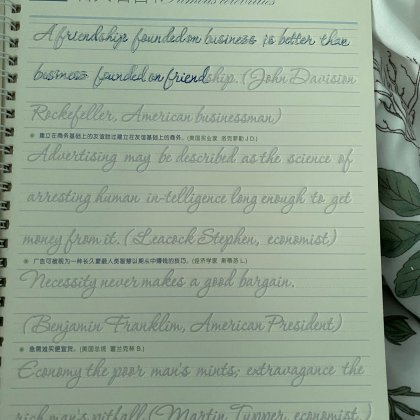 A friendship founded on business is better than
business founded on friendship. (John Davision
Rockefeller, American businessman)
● 建立在商务基础上的友谊胜过建立在友谊基础上的商务。(美国实业家 洛克菲勒 J D.)
Advertising may be described as the science of
arresting human in-telligence long enough to get
money from it. (Leacock Stephen, economist)
● 广告可被视为一种长久蒙蔽人类智慧以期从中赚钱的技巧。(经济学家 斯蒂芬 L.)
Necessity never makes a good bargain.
(Benjamin Franklim, American President)
● 急需难买便宜货。(美国总统 富兰克林 B.)
Economy the poor man's mints; extravagance the
rich man's pitfall. (Martin Tupper, economist